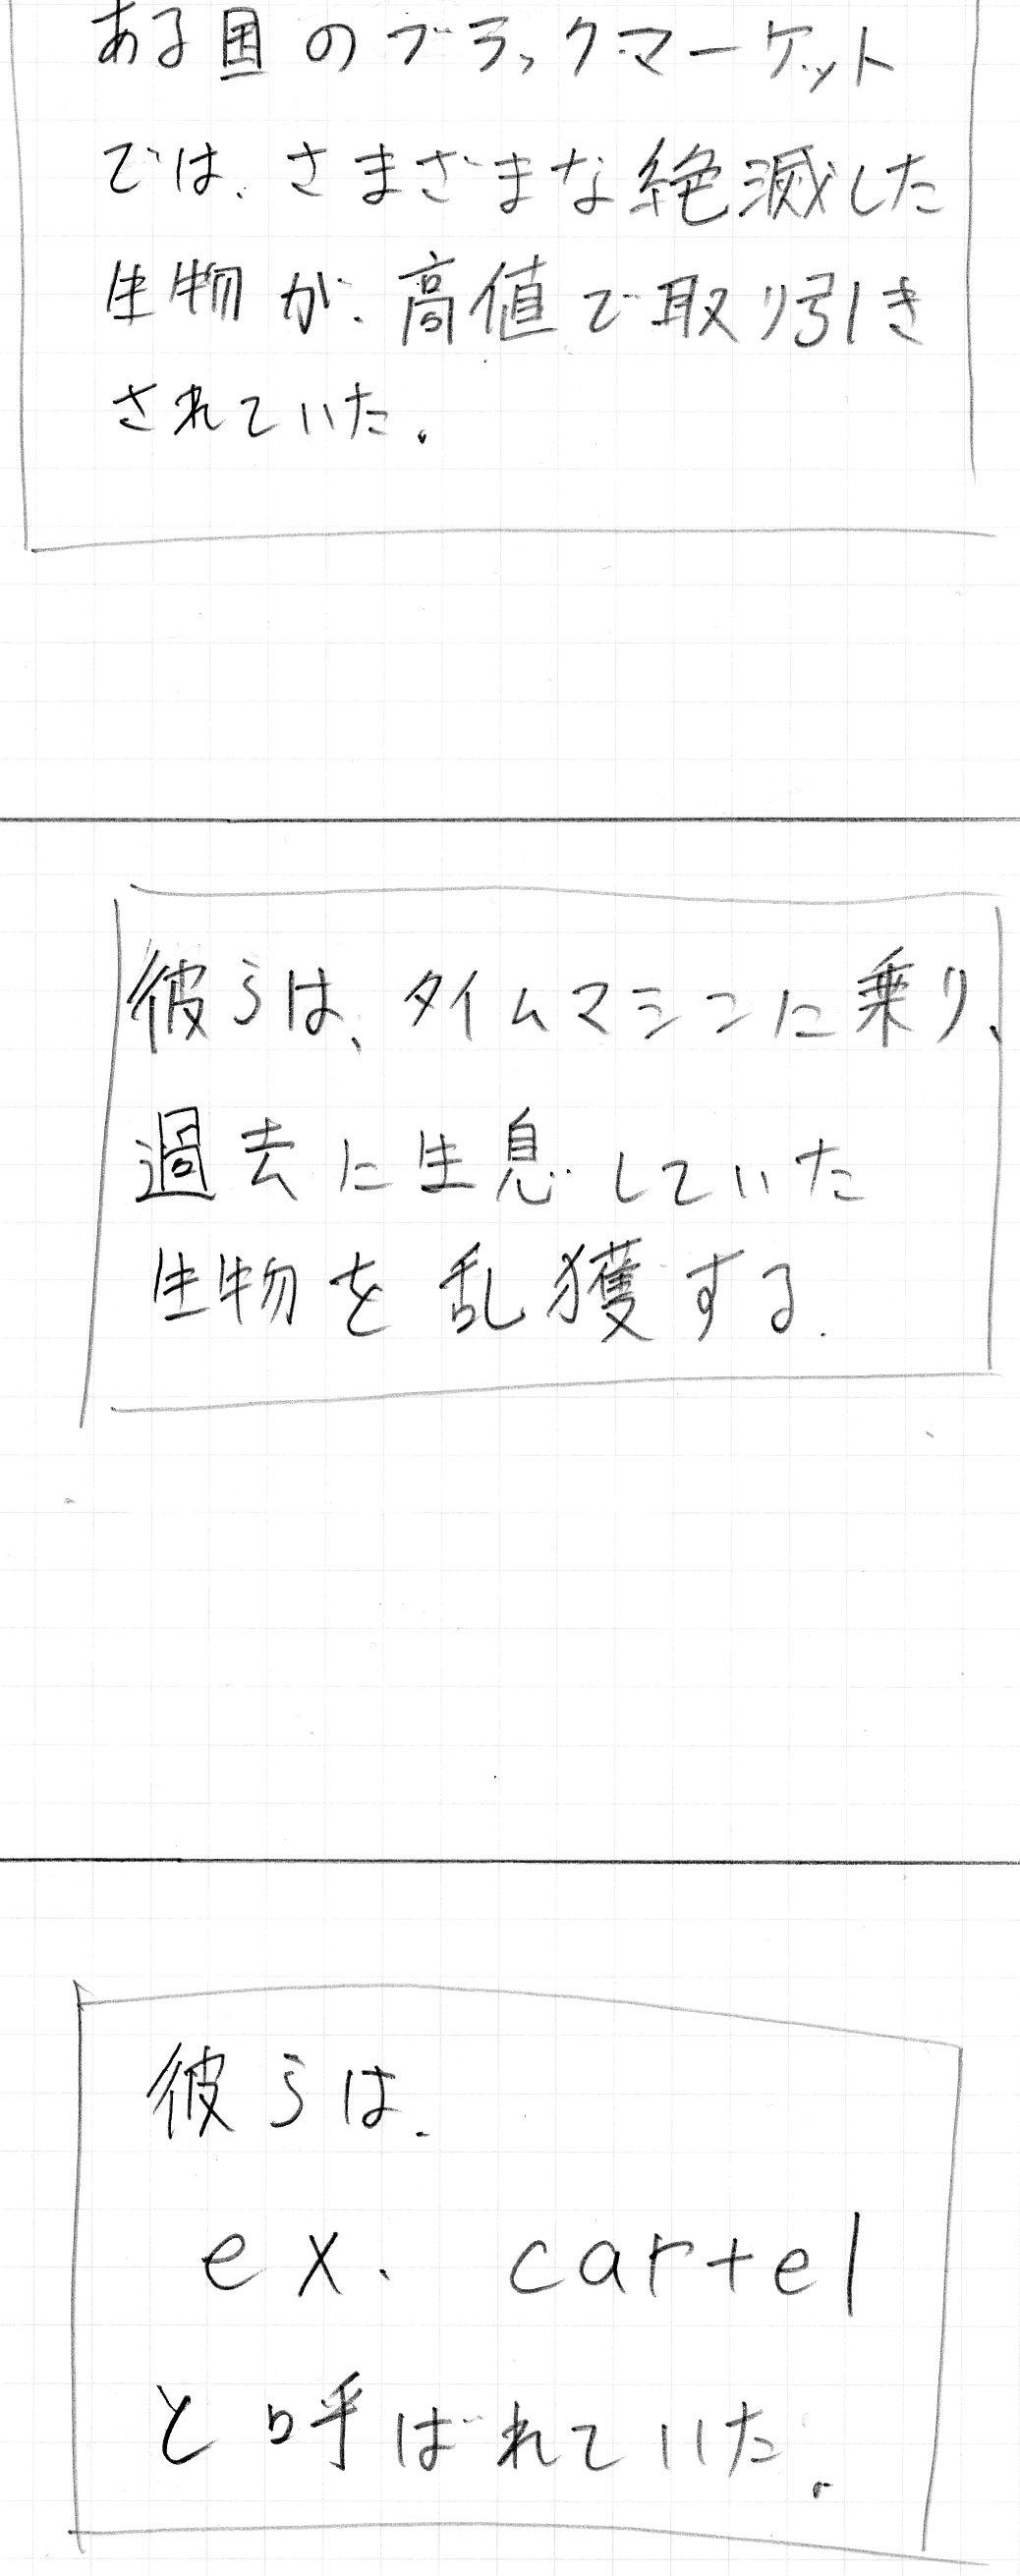 ある国のブラックマーケット
では、さまざまな絶滅した
生物が、高値で取り引き
されていた。
彼らは、タイムマシンに乗り、
過去に生息していた
生物を乱獲する。
彼らは、
ex. cartel
と呼ばれていた。